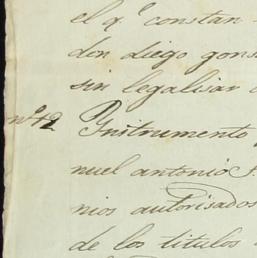 el q.e constan
don diego gons
sin legalisar
n.o 12 Ynstrumento
nuel antonio
nios autorisados
de los titulos